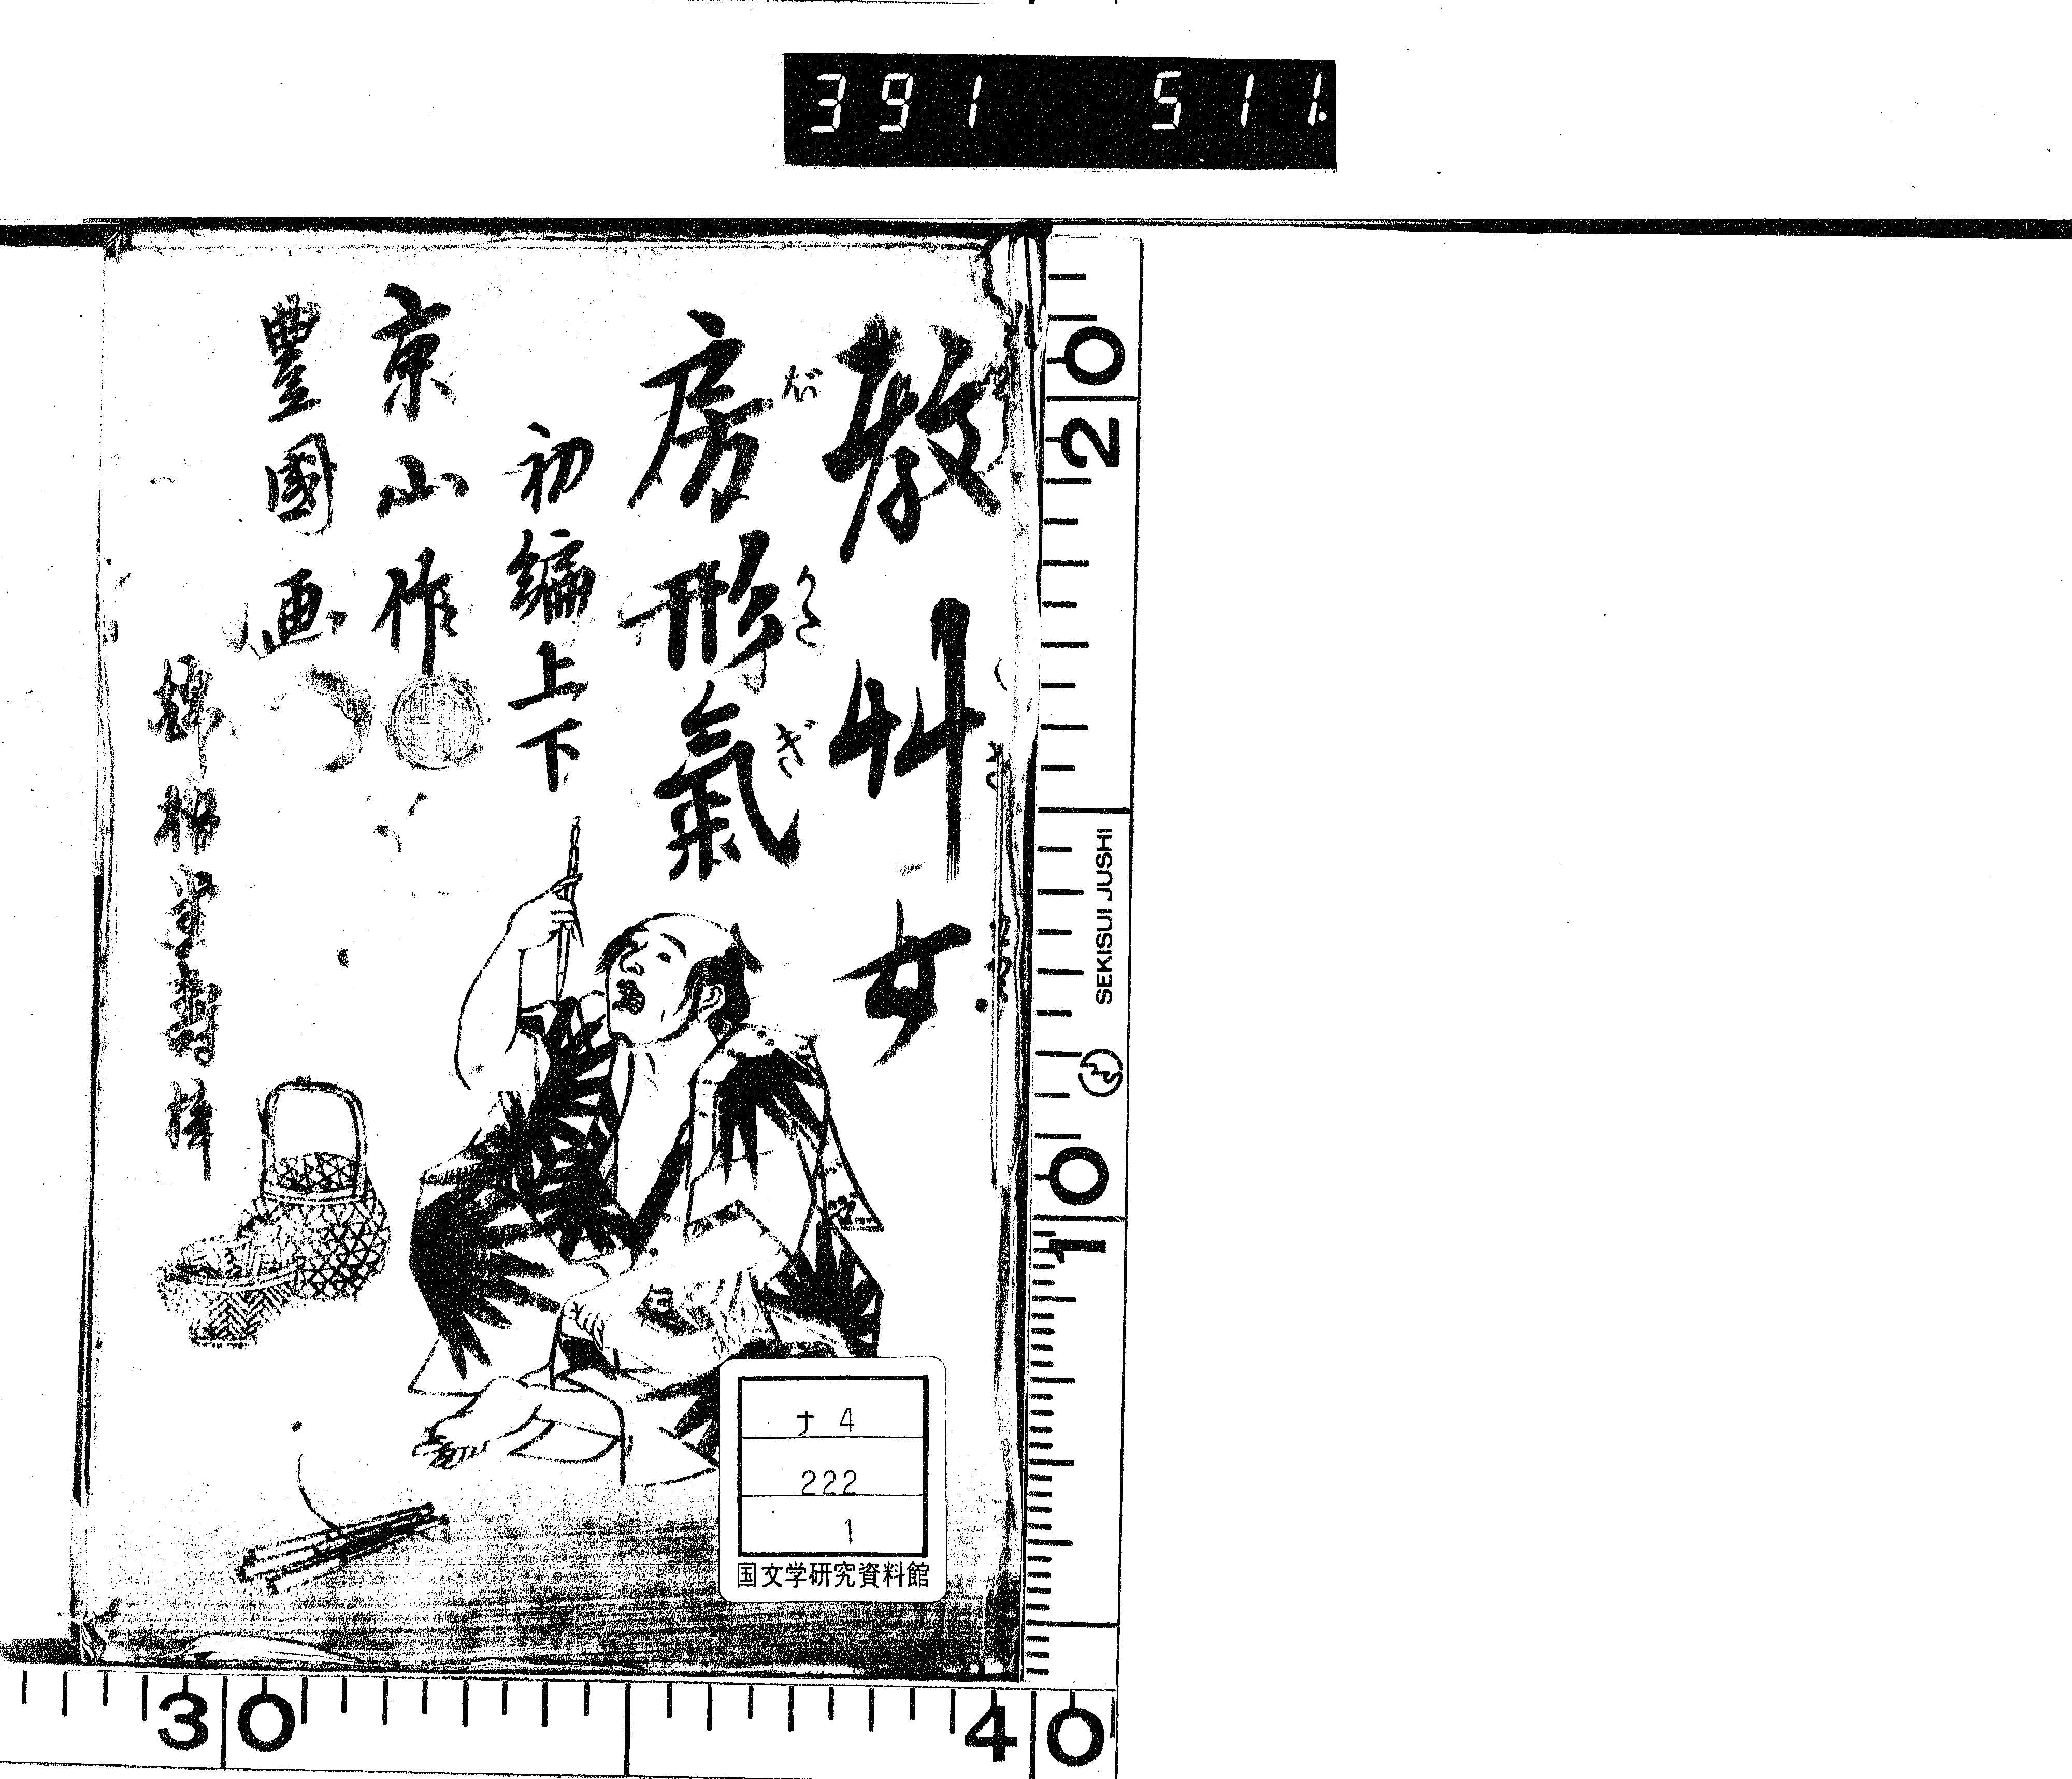 391 511.
教艸女
房形氣
だ
かた
ぎ
初編上下
京山作
豊國画
錦耕堂壽梓
ナ 4
222
1
国文学研究資料館
20
SEKISUI JUSHI
10
30
40